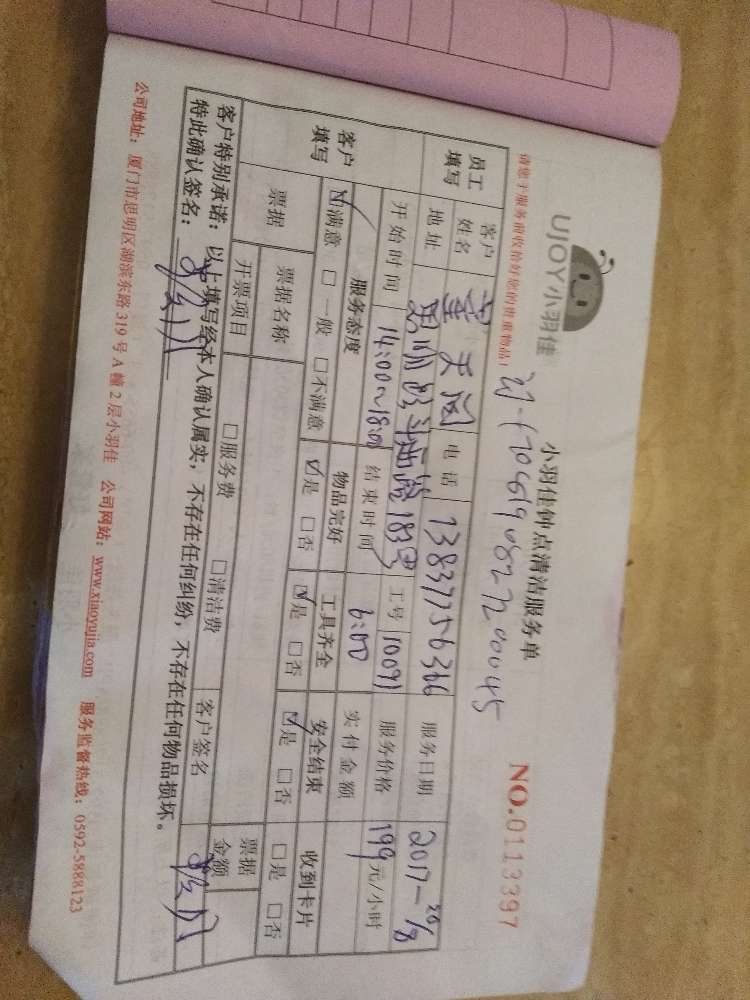 UJOY小羽佳
小羽佳钟点清洁服务单
NO.0113397
请您于服务前收拾好您的贵重物品!
员工填写
客户姓名
电话
服务日期 2017-
地址 思明区
183号
工号 10091
服务价格 199元/小时
开始时间 14:00~18:00
结束时间 6:00
实付金额
客户填写
服务态度
物品完好
工具齐全
安全结束
收到卡片
☑满意 □一般 □不满意
☑是 □否
☑是 □否
☑是 □否
□是 □否
票据
票据名称
开票项目
□服务费 □清洁费
客户签名
票据金额
客户特别承诺:以上填写经本人确认属实,不存在任何纠纷,不存在任何物品损坏。
特此确认签名:
公司地址:厦门市思明区湖滨东路319号A幢2层小羽佳 公司网站:www.xiaoyujia.com 服务监督热线:0592-5888123